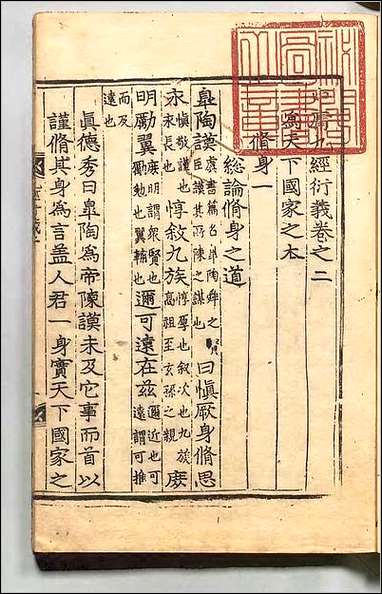 中庸九經衍義卷之二
爲天下國家之本
脩身一
總論脩身之道
皐陶謨虞書篇名皐陶舜之賢臣謨其所陳之謀也曰愼厥身脩思
永愼敬謹也永長也惇敘九族惇厚也敘次也九族高祖至玄孫之親庶
明勵翼庶明謂衆賢也勵勉也翼輔也邇可遠在玆邇近也可遠謂可推
而及遠也
眞德秀曰皐陶爲帝陳謨未及它事而首以
謹脩其身爲言盖人君一身實天下國家之